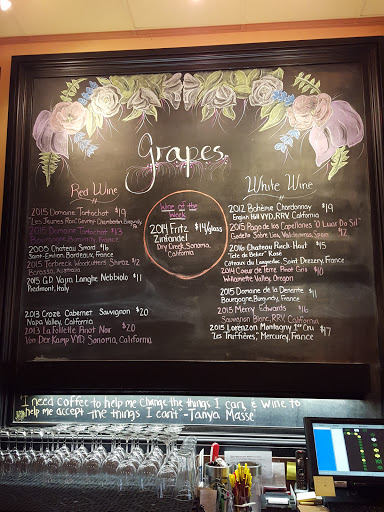 Grapes
Red Wine
2015 Domaine Tortochot $19
"Les Jeunes Rois", Gevrey-Chambertin, Burgundy
2015 Domaine Tortochot $13
Burgundy, France
2005 Chateau Simard $16
Saint-Emilion, Bordeaux, France
2015 Torbreck Woodcutters Shiraz $12
Barossa, Australia
2015 G.D. Vajra Langhe Nebbiolo $11
Piedmont, Italy
2013 Croze Cabernet Sauvignon $20
Napa Valley, California
2013 La Follette Pinot Noir $20
Van Der Kamp VYD, Sonoma, California
Wine of the
Week
2014 Fritz $14/glass
Zinfandel
Dry Creek, Sonoma,
California
White Wine
2012 Bohème Chardonnay $19
English Hill VYD, RRV, California
2015 Pago de los Capellanes "O Luar Do Sil"
Godello Sobre Lias, Valdeorras, Spain $12
2016 Chateau Puech-Haut $15
"Tete de Belier" Rosé
Côteaux du Languedoc, Saint Drezery, France
2014 Coeur de Terre Pinot Gris $10
Willamette Valley, Oregon
2015 Domaine de la Denante $11
Bourgogne, Burgundy, France
2015 Merry Edwards $16
Sauvignon Blanc, RRV, California
2015 Lorenzon Montagny 1er Cru $17
"Les Truffières", Mercurey, France
"I need coffee to help me change the things I can & wine to
help me accept the things I can't" -Tanya Masse